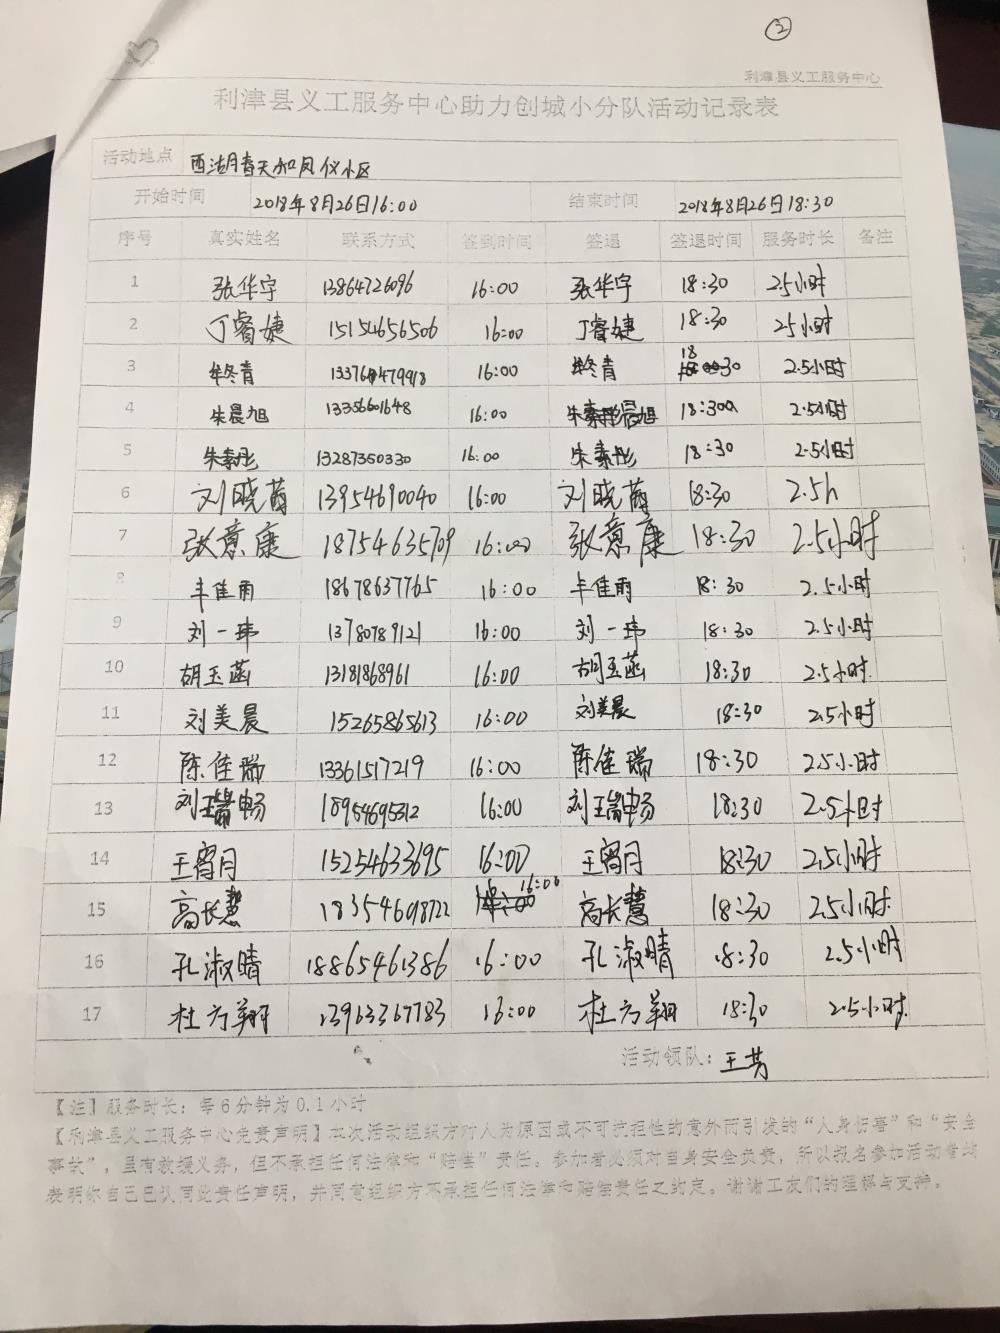 ②
利津县义工服务中心
利津县义工服务中心助力创城小分队活动记录表
活动地点 西湖春天和凤仪小区
开始时间 2018年8月26日16:00 结束时间 2018年8月26日18:30
序号 真实姓名 联系方式 签到时间 签退 签退时间 服务时长 备注
1 张华宇 13864726096 16:00 张华宇 18:30 2.5小时
2 丁睿婕 15154656506 16:00 丁睿婕 18:30 2.5小时
3 牟冬青 16:00 牟冬青 18:30 2.5小时
4 朱晨旭 13356601648 16:00 朱晨旭 18:30 2.5小时
5 朱素彤 13287350330 16:00 朱素彤 18:30 2.5小时
6 刘晓茵 13954690040 16:00 刘晓茵 18:30 2.5h
7 张意康 18754635709 16:00 张意康 18:30 2.5小时
8 丰佳雨 18678637765 16:00 丰佳雨 18:30 2.5小时
9 刘一玮 13780789121 16:00 刘一玮 18:30 2.5小时
10 胡玉菡 13181868961 16:00 胡玉菡 18:30 2.5小时.
11 刘美晨 15265865613 16:00 刘美晨 18:30 2.5小时
12 陈佳瑞 13361517219 16:00 陈佳瑞 18:30 2.5小时
13 刘瑞畅 18954695312 16:00 刘瑞畅 18:30 2.5小时
14 王宵月 15254633695 16:00 王宵月 18:30 2.5小时
15 高长慧 18354698722 16:00 高长慧 18:30 2.5小时
16 孔淑晴 18865461386 16:00 孔淑晴 18:30 2.5小时
17 杜方翔 13963367783 16:00 杜方翔 18:30 2.5小时.
活动领队：王芳
【注】服务时长：每6分钟为0.1小时
【利津县义工服务中心免责声明】本次活动组织方对人为原因或不可抗拒性的意外而引发的“人身伤害”和“安全
事故”，虽有救援义务，但不承担任何法律和“赔偿”责任。参加者必须对自身安全负责，所以报名参加活动者均
表明你自己已认同此责任声明，并同意组织方不承担任何法律和赔偿责任之约定。谢谢工友们的理解与支持。